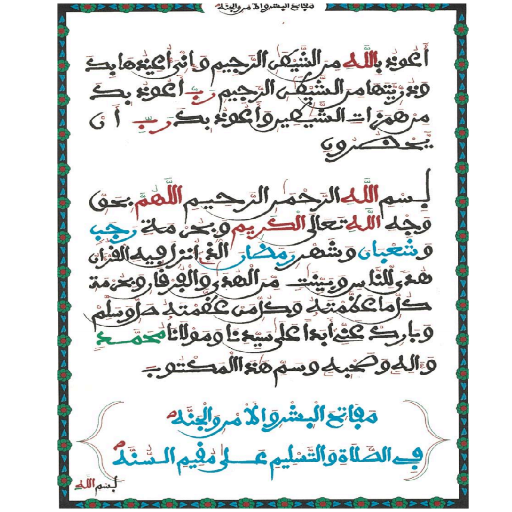 مفاتح البشر والامن والجنه
أعوذ بالله من الشيطن الرجيم وإني أعيذها بك
وذريتها من الشيطن الرجيم رب أعوذ بك
من همزات الشيطين وأعوذ بك رب أن
يحضرون
بسم الله الرحمن الرحيم اللهم بحق
وجه الله تعالى الكريم وبحرمة رجب
وشعبان وشهر رمضان الذي أنزل فيه القرءان
هدى للناس وبينت من الهدى والفرقان وبحرمة
كل ما عظمته وكل من عظمته صل وسلم
وبارك عني أبدا على سيدنا ومولانا محمد
وءاله وصحبه وسم هذا المكتوب
مفاتح البشر والامن والجنه
في الصلاة والتسليم على مقيم السنه
بسم الله